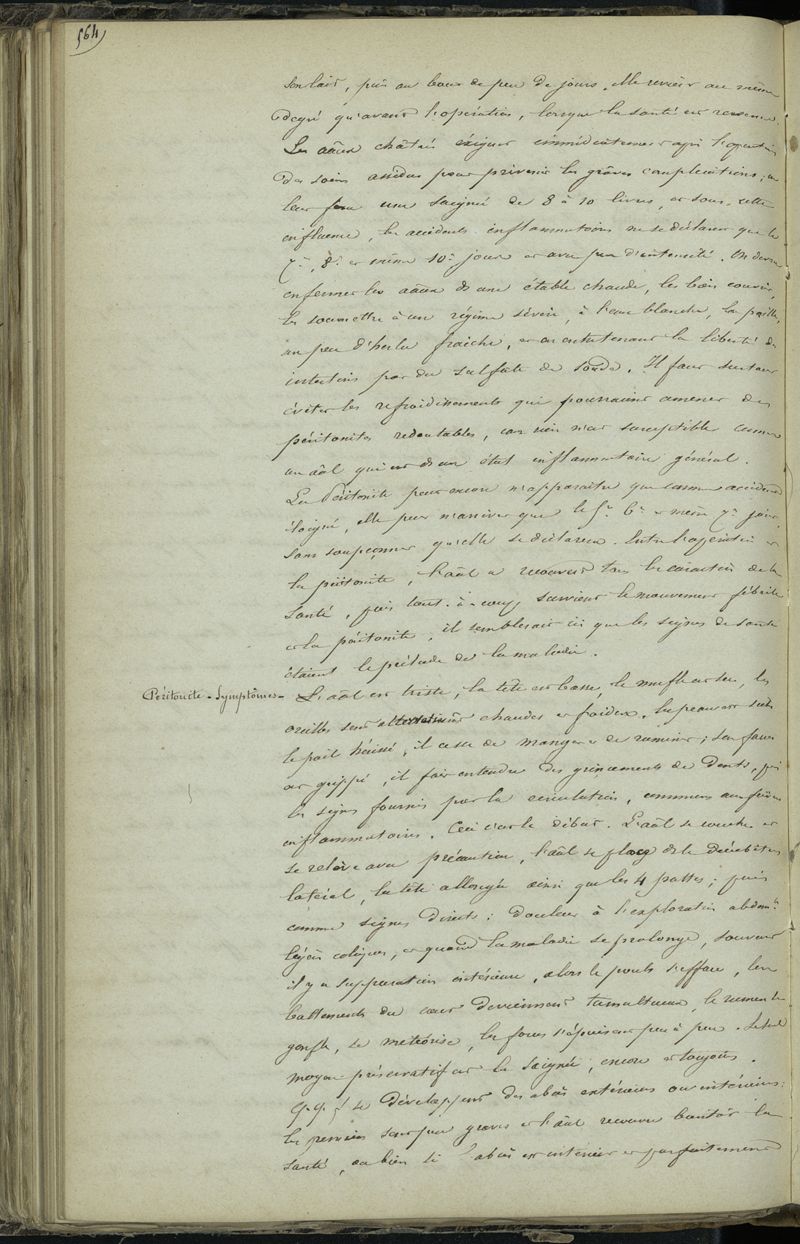 564
son lait, puis au bout de peu de jours, elle revient au même
degré qu'avant l'opération, lorsque la santé est revenue.
Les aâux châtrés exigent immédiatement après l'opération
des soins assidus pour prévenir les graves complications; on
leur fera une saignée de 8 à 10 livres, et sous cette
influence, les accidents inflammatoires ne se déclarent que le
7e, 8e et même 10e jour et avec peu d'intensité. On devra
enfermer les aâux ds une étable chaude, les bien couvrir,
les soumettre à un régime sévère, à l'eau blanche, la paille,
un peu d'herbe fraîche, et en entretenant la liberté des
intestins par du sulfate de soude. Il faut surtout
éviter les refroidissements qui pourraient amener des
péritonites redoutables, car rien n'est susceptible comme
un aâl qui est ds un état inflammatoire général.
La Péritonite peut encore n'apparaître que comme accident
éloigné, elle peut n'arriver que le 5e 6e et même 7e jour,
sans soupçonner qu'elle se déclarera. Entre l'opération et
la péritonite, l'aâl a recouvré tous les caractères de la
santé, puis tout-à-coup survient le mouvement fébrile
et la péritonite, il semblerait ici que les signes de santé
étaient le prélude de la maladie.
Péritonite - Symptômes - L'aâl est triste, la tête est basse, le mufle est sec, les
oreilles sont alternativement chaudes et froides. La peau est sèche
le poil hérissé, il cesse de manger et de ruminer; sa face
est grippée, il fait entendre des grincements de dents, puis
les signes fournis par la circulation, communs aux fièvres
inflammatoires. Ceci c'est le début. L'aâl se couche et
se relève avec précaution, l'aâl se place ds le décubitus
latéral, la tête allongée ainsi que les 4 pattes; puis
comme signes directs: douleur à l'exploration abdom.le
légères coliques, et quand la maladie se prolonge, souvent
il y a suppuration intérieure, alors le pouls s'efface, les
battements du cœur deviennent tumultueux, le rumen se
gonfle, se météorise, les forces s'épuisent peu à peu. Le seul
moyen préservatif est la saignée, encore et toujours.
Qq. f. se développent des abcès extérieurs ou intérieurs:
les premiers sont peu graves et l'aâl recouvre bientôt la
santé, ou bien si l'abcès est intérieur et parfaitement